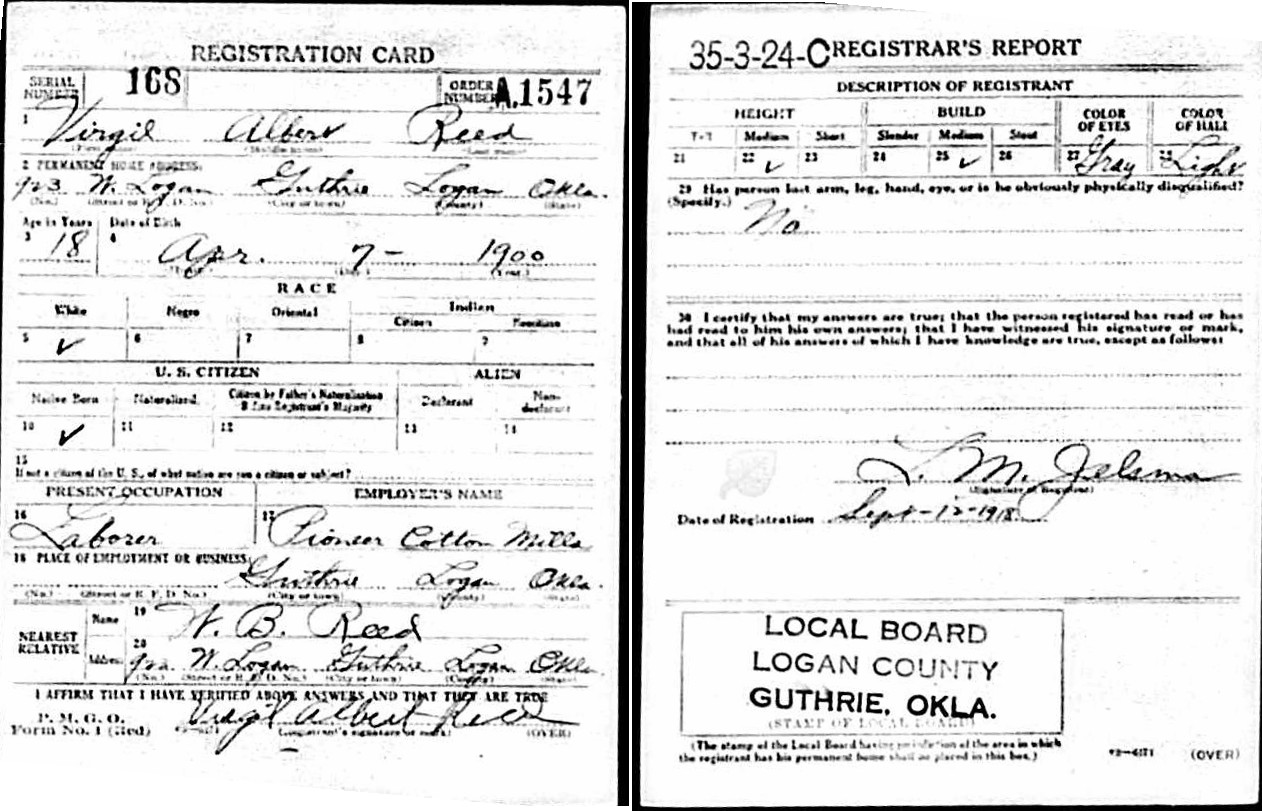 REGISTRATION CARD
SERIAL NUMBER 168 ORDER NUMBER A1547
1 Virgil Albert Reed
(First name) (Middle name) (Last name)
2 PERMANENT HOME ADDRESS:
W. Logan Guthrie Logan Okla.
(No.) (Street or R. F. D. No.) (City or town) (County) (State)
Age in Years Date of Birth
3 18 4 Apr. 7- 1900
(Month) (Day) (Year)
RACE
White Negro Oriental Indian
Citizen Noncitizen
5 ✓ 6 7 8 9
U. S. CITIZEN ALIEN
Native Born Naturalized Citizen by Father's Naturalization Before Registrant's Majority Declarant Non-declarant
10 ✓ 11 12 13 14
15
If not a citizen of the U. S., of what nation are you a citizen or subject?
PRESENT OCCUPATION EMPLOYER'S NAME
16 Laborer 17 Pioneer Cotton Mills
18 PLACE OF EMPLOYMENT OR BUSINESS:
Guthrie Logan Okla.
(No.) (Street or R. F. D. No.) (City or town) (County) (State)
NEAREST RELATIVE Name 19 W. B. Reed
Address 20 W. Logan Guthrie Logan Okla.
(No.) (Street or R. F. D. No.) (City or town) (County) (State)
I AFFIRM THAT I HAVE VERIFIED ABOVE ANSWERS AND THAT THEY ARE TRUE
P. M. G. O.
Form No. 1 (Red) Virgil Albert Reed
(Registrant's signature or mark) (OVER)
35-3-24-C REGISTRAR'S REPORT
DESCRIPTION OF REGISTRANT
HEIGHT BUILD COLOR OF EYES COLOR OF HAIR
Tall Medium Short Slender Medium Stout
21 22 ✓ 23 24 25 ✓ 26 27 Gray 28 Light
29 Has person lost arm, leg, hand, eye, or is he obviously physically disqualified?
(Specify.) No
30 I certify that my answers are true; that the person registered has read or has
had read to him his own answers; that I have witnessed his signature or mark,
and that all of his answers of which I have knowledge are true, except as follows:
L. M. Jelsma
(Signature of Registrar)
Date of Registration Sept-12-1918
LOCAL BOARD
LOGAN COUNTY
GUTHRIE, OKLA.
(STAMP OF LOCAL BOARD)
(The stamp of the Local Board having jurisdiction of the area in which
the registrant has his permanent home shall be placed in this box.)
(OVER)